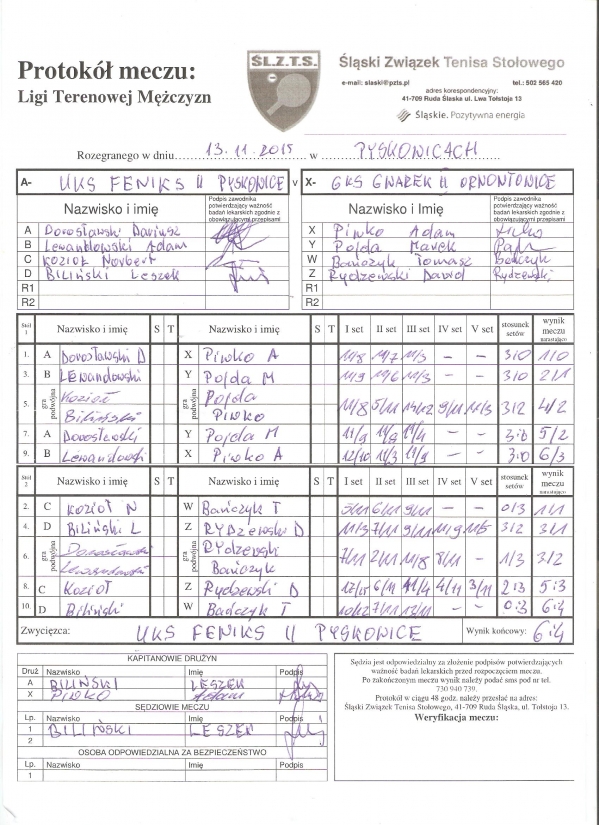 Protokół meczu:
Ligi Terenowej Mężczyzn
ŚL.Z.T.S.
Śląski Związek Tenisa Stołowego
e-mail: slaski@pzts.pl tel.: 502 565 420
adres korespondencyjny:
41-709 Ruda Śląska ul. Lwa Tołstoja 13
Śląskie. Pozytywna energia
Rozegranego w dniu 13.11.2015 w PYSKOWICACH
A- UKS FENIKS II PYSKOWICE v X- GKS GWAREK II ORNONTOWICE
Nazwisko i Imię Podpis zawodnika potwierdzający ważność badań lekarskich zgodnie z obowiązującymi przepisami Nazwisko i Imię Podpis zawodnika potwierdzający ważność badań lekarskich zgodnie z obowiązującymi przepisami
A Dorosławski Dariusz X Piwko Adam
B Lewandowski Adam Y Pojda Marek
C Kozioł Norbert W Bańczyk Tomasz Bańczyk
D Biliński Leszek Z Rydzewski Dawid Rydzewski
R1 R1
R2 R2
Stół 1 Nazwisko i imię S T Nazwisko i imię S T I set II set III set IV set V set stosunek setów wynik meczu narastająco
1. A Dorosławski D X Piwko A 11/8 11/7 11/3 – – 3:0 1/0
3. B LEWANDOWSKI Y Pojda M 11/9 11/6 11/8 – – 3:0 2/1
5. gra podwójna Kozioł Biliński Pojda Piwko 11/8 5/11 14/12 9/11 11/3 3/2 4/2
7. A Dorosławski Y Pojda M 11/9 11/9 11/4 – – 3:0 5/2
9. B Lewandowski X Piwko A 12/10 11/3 11/9 – – 3:0 6/3
Stół 2 Nazwisko i imię S T Nazwisko i imię S T I set II set III set IV set V set stosunek setów wynik meczu narastająco
2. C KOZIOŁ N W Bańczyk T 5/11 6/11 9/11 – – 0/3 1/1
4. D BILIŃSKI L Z RYDZEWSKI D 11/3 7/11 9/11 11/9 11/5 3/2 3/1
6. gra podwójna Dorosławski Lewandowski Rydzewski Bańczyk 7/11 2/11 11/8 8/11 – 1/3 3/2
8. C Kozioł Z Rydzewski D 17/15 6/11 11/4 4/11 3/11 2:3 5:3
10. D Biliński W Bańczyk T 10/12 7/11 12/11 – – 0:3 6:4
Zwycięzca: UKS FENIKS II PYSKOWICE Wynik końcowy: 6:4
KAPITANOWIE DRUŻYN
Druż Nazwisko Imię Podpis
A BILIŃSKI LESZEK
X PIWKO Adam
SĘDZIOWIE MECZU
Lp. Nazwisko Imię Podpis
1 BILIŃSKI LESZEK
2
OSOBA ODPOWIEDZIALNA ZA BEZPIECZEŃSTWO
Lp. Nazwisko Imię Podpis
1
Sędzia jest odpowiedzialny za złożenie podpisów potwierdzających
ważność badań lekarskich przed rozpoczęciem meczu.
Po zakończonym meczu wynik należy podać sms pod nr tel.
730 940 739.
Protokół w ciągu 48 godz. należy przesłać na adres:
Śląski Związek Tenisa Stołowego, 41-709 Ruda Śląska, ul. Tołstoja 13.
Weryfikacja meczu: